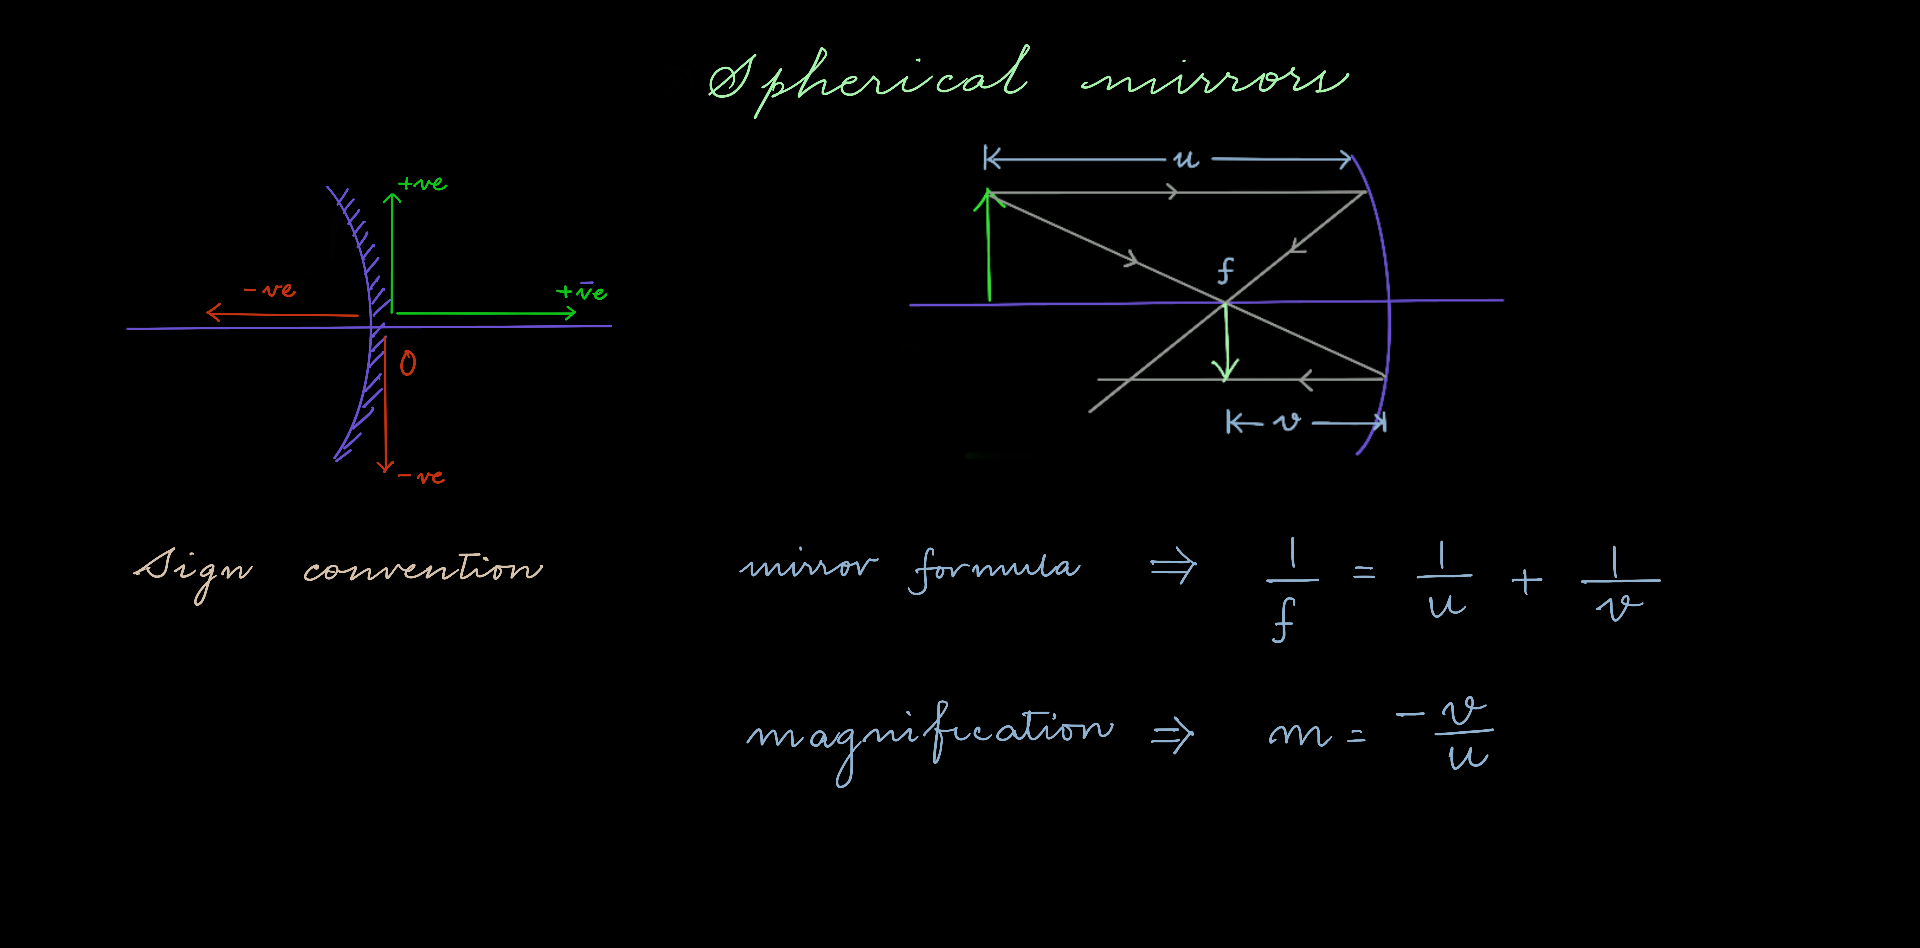 Spherical mirrors
+ve
-ve
+ve
O
-ve
u
f
v
Sign convention
mirror formula ⇒ 1/f = 1/u + 1/v
magnification ⇒ m = -v/u